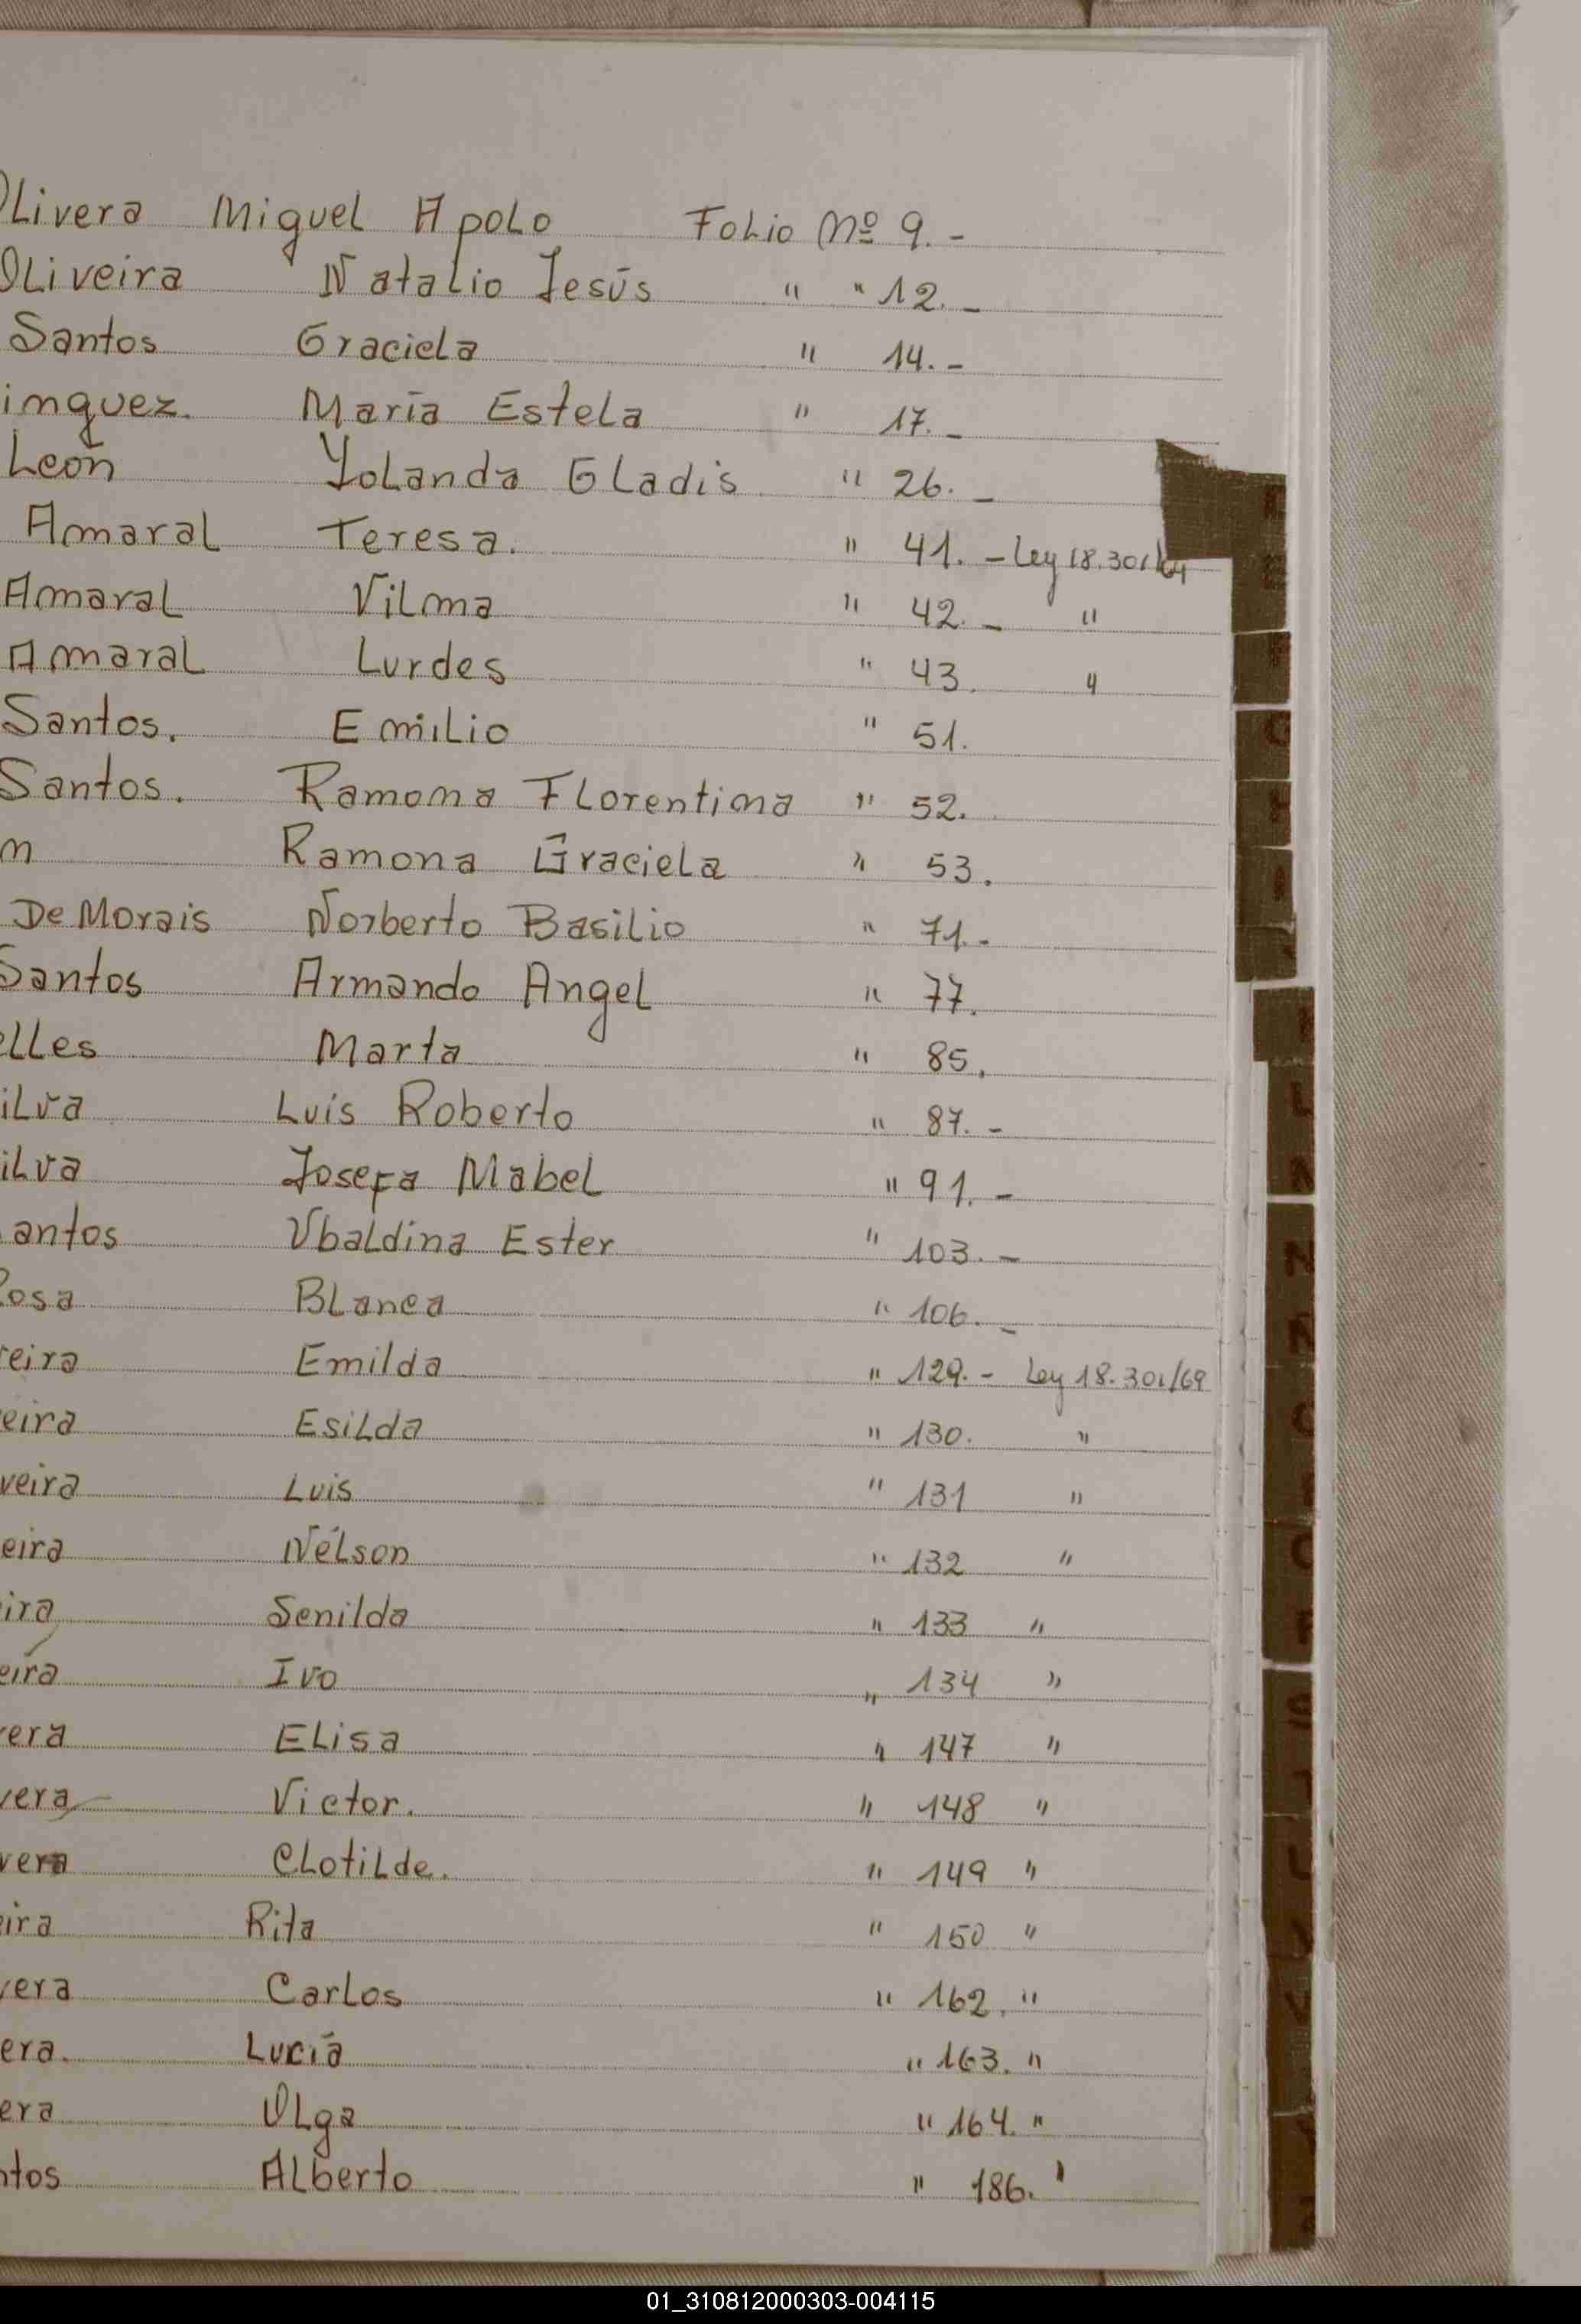 Olivera Miguel Apolo Folio Nº 9.-
Oliveira Natalio Jesús " " 12.-
Santos Graciela " 14.-
inguez. María Estela " 17.-
León Yolanda Gladis " 26.-
Amaral Teresa. " 41.- Ley 18.301/69
Amaral Vilma " 42.- "
Amaral Lurdes " 43. "
Santos. Emilio " 51.
Santos. Ramona Florentina " 52.
n Ramona Graciela " 53.
De Morais Norberto Basilio " 71.-
Santos Armando Angel " 77.
elles Marta " 85.
ilva Luis Roberto " 87.-
ilva Josefa Mabel " 91.-
antos Ubaldina Ester " 103.-
Rosa Blanca " 106.-
eira Emilda " 129.- Ley 18.301/69
eira Esilda " 130. "
veira Luis " 131 "
eira Nélson " 132 "
ira Senilda " 133 "
eira Ivo " 134 "
vera Elisa " 147 "
vera Victor. " 148 "
vera Clotilde. " 149 "
eira Rita " 150 "
vera Carlos " 162. "
era. Lucía " 163. "
era Olga " 164. "
ntos Alberto " 186. '
01_310812000303-004115